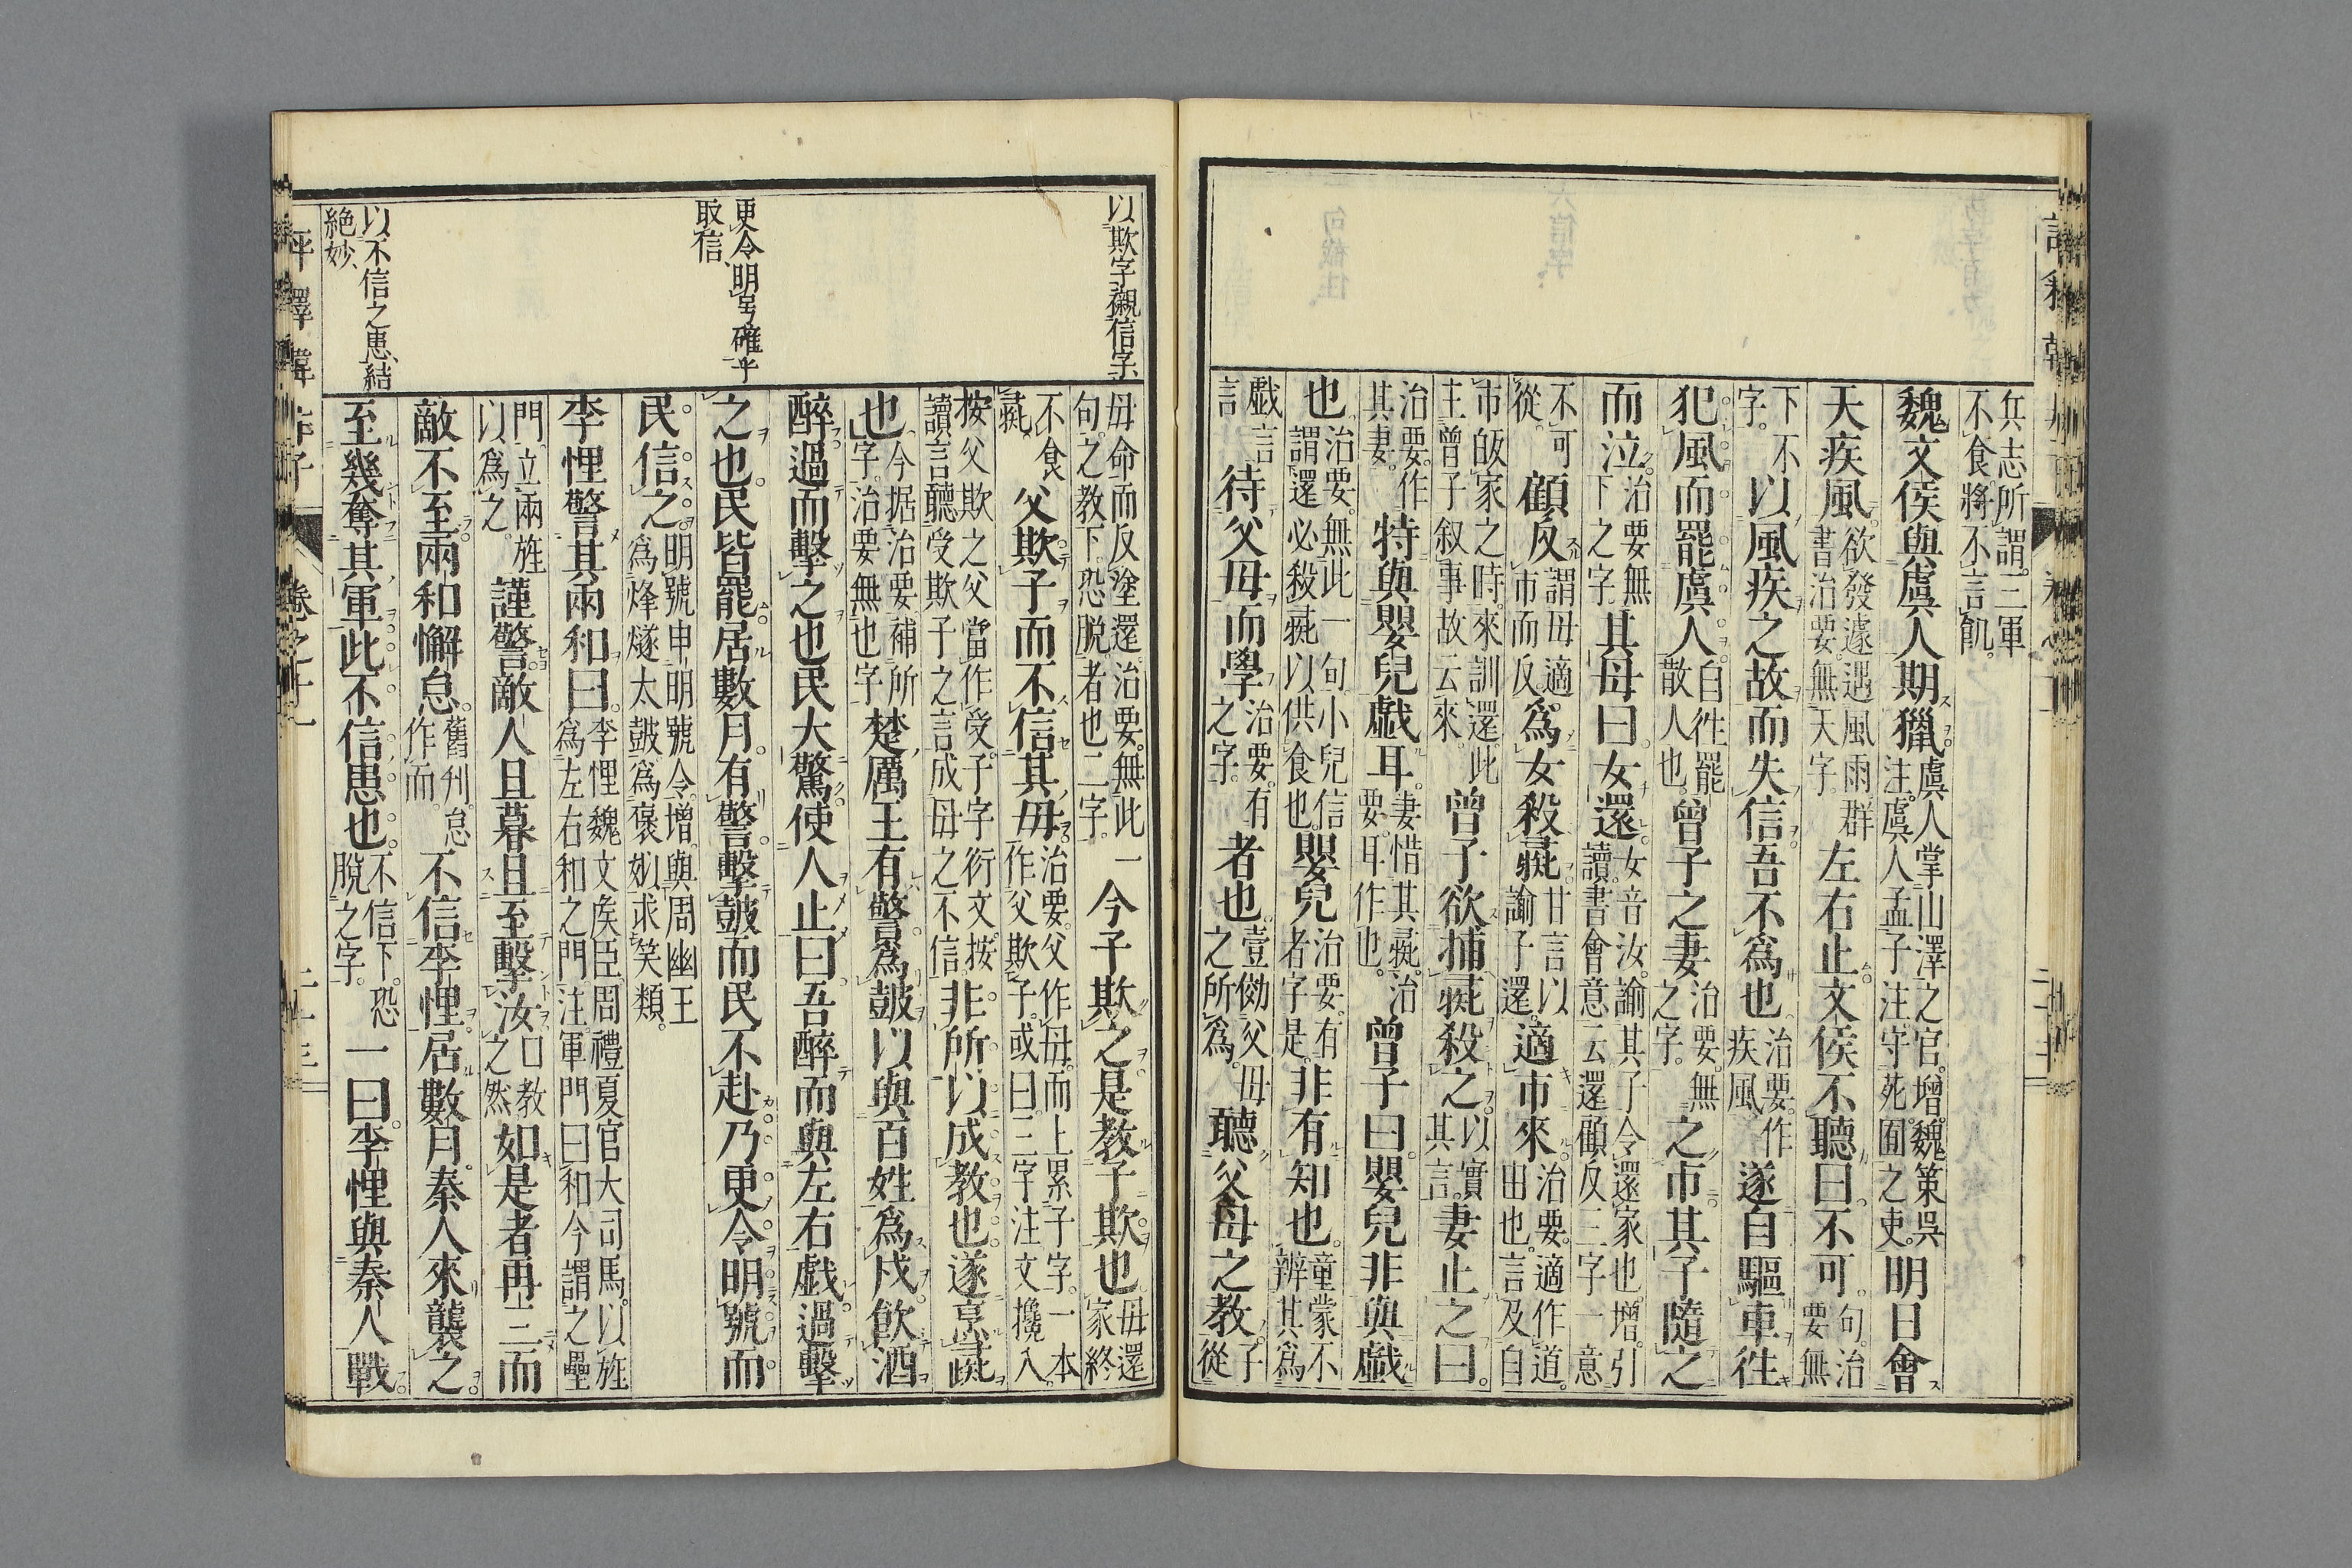 兵志所謂。三軍不食。將不言飢。
魏文侯與虞人期獵。虞人掌山澤之官。增。魏策吳注。虞人。孟子注。守死囿之吏。明日會
天疾風。欲發遽遇風雨。群書治要。無天字。左右止文侯不聽。曰。不可。句。治要無
下不字。以風疾之故。而失信。吾不爲也。治要。作疾風。遂自驅車往
犯風而罷虞人。自往罷散人也。曾子之妻治要。無之字。之市。其子隨之
而泣。治要無下之字。其母曰。女還。女音汝。諭其子令還家也。增。引讀書會意云。還顧反三字一意
不可從。顧反謂母適市而反。爲女殺彘。甘言以諭子還。適市來。治要。適作道。由也。言及自
市皈家之時。來訓還。此主曾子叙事。故云來。曾子欲捕彘殺之。以實其言。妻止之曰。
治要。作其妻。特與嬰兒戯耳。妻惜其彘。治要。耳作也。曾子曰。嬰兒非與戯
也。治要。無此一句。小兒信謂還必殺彘以供食也。嬰兒治要。有者字是。非有知也。童蒙不辨其爲
戯言言待父母而學治要。有之字。者也。壹傚父母之所爲。聽父母之教。子從
以欺字襯信字
更令明号確乎
取信、
以不信之患、結
絶妙、
母命而反塗還。治要。無此一句。之教下。恐脱者也二字。今子欺之。是教子欺也。母還家終
不食彘。父欺子。而不信其母。治要。父作母。而上累子字。一本作父欺子。或曰。三字注文攙入。
按父欺之父。當作受。子字衍文。按讀言聽受欺子之言成母之不信。非所以成教也。遂烹彘
也。今据治要補所字。治要無也字楚厲王有警。爲皷以與百姓爲戍。飲酒
醉。過而擊之也。民大驚。使人止曰。吾醉而與左右戯。過擊
之也。民皆罷。居數月。有警。擊皷而民不赴。乃更令明號而
民信之。明號申明號令。增。與周幽王爲烽燧太皷爲褒姒求笑類。
李悝警其兩和曰。李悝魏文矦臣。周禮夏官大司馬。以旌爲左右和之門。注。軍門曰和今謂之壘
門。立兩旌以爲之。謹警。敵人且暮且至擊汝。口教之然如是者再三。而
敵不至。兩和懈怠。舊刋。怠作而。不信李悝。居數月。秦人來襲之。
至幾奪其軍。此不信患也。不信下。恐脱之字。一曰。李悝與秦人戰。